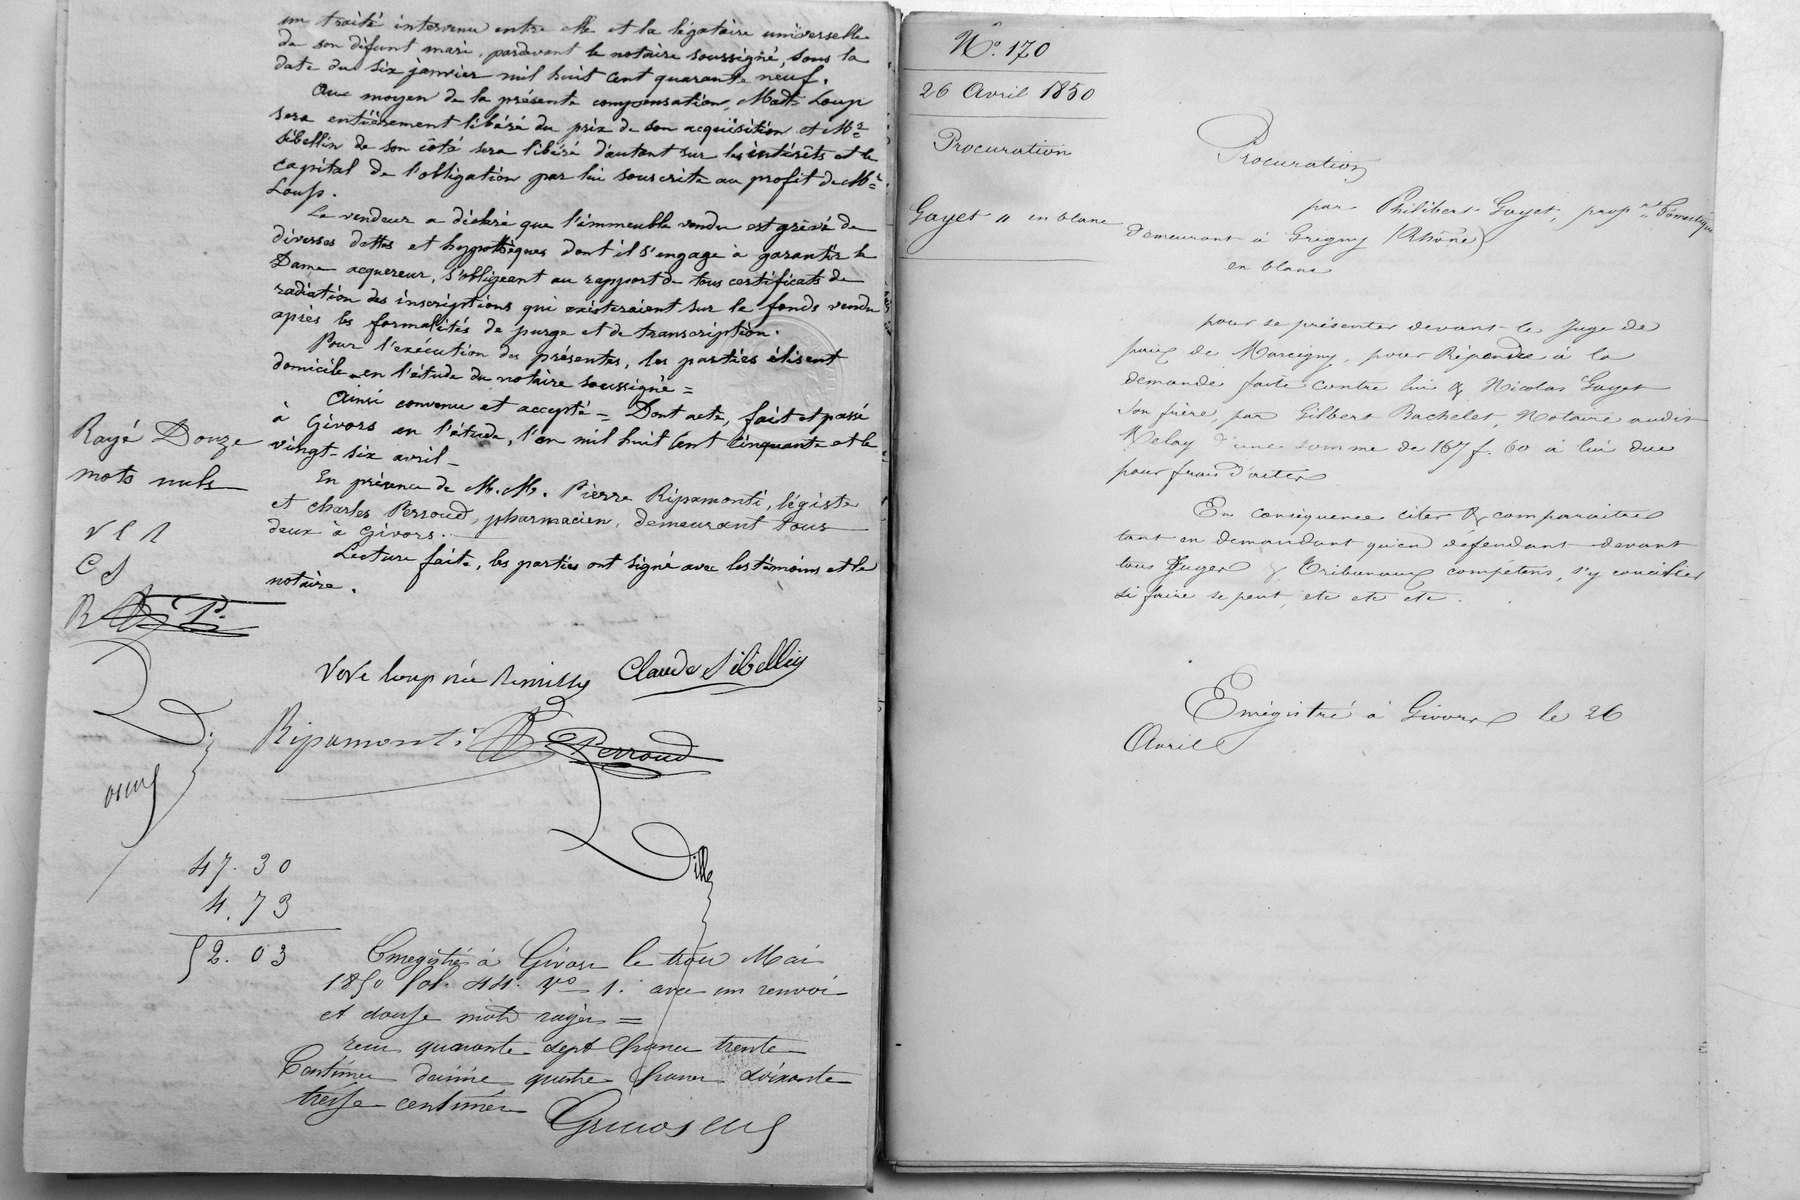 un traité intervenu entre elle et la légataire universelle
de son défunt mari, pardevant le notaire soussigné, sous la
date du six janvier mil huit cent quarante neuf.
Au moyen de la présente compensation, Made Loup
sera entièrement libéré du prix de son acquisition et Mr
Sibellin de son côté sera libéré d'autant sur les intérêts et le
capital de l'obligation par lui souscrite au profit de Me
Loup.
Le vendeur a déclaré que l'immeuble vendu est grévé de
diverses dettes et hypothèques dont il s'engage à garantir la
Dame acquereur, s'obligeant au rapport de tous certificats de
radiation des inscriptions qui existeraient sur le fonds vendu
après les formalités de purge et de transcription.
Pour l'exécution des présentes, les parties élisent
domicile en l'étude du notaire soussigné =
Ainsi convenu et accepté = Dont acte, fait et passé
à Givors en l'étude, l'an mil huit cent cinquante et le
vingt-six avril _
En présence de M.M. Pierre Ripamonti, légiste
et Charles Perroud, pharmacien, demeurant tous
deux à Givors.
Lecture faite, les parties ont signé avec les témoins et le
notaire.
Rayé Douze
mots nuls
V L R
C S
R P.
Veve Loup née Claude Sibellin
Ripamonti Perroud
Dille
47.30
4.73
52.03
Enregistré à Givors le trois Mai
1850 fol. 44. Vo 1. avec un renvoi
et douze mots rayés =
recu quarante sept francs trente
Centimes décime quatre francs soixante
treize centimes
No. 170
26 Avril 1850
Procuration
Gayet " en blanc
Procuration
par Philibert Gayet, propre
demeurant à Grigny (Rhône)
en blanc
pour se présenter devant le Juge de
paix de Marcigny, pour Répondre à la
demande faite contre lui & Nicolas Gayet
son frère, par Gilbert Bachelet, Notaire audit
Melay d'une somme de 167 f. 60 à lui due
pour frais d'actes
En conséquence citer & comparaitre
tant en demandant qu'en défendant devant
tous Juges & Tribunaux compétens, s'y concilier
si faire se peut, etc etc etc.
Enregistré à Givors le 26
Avril